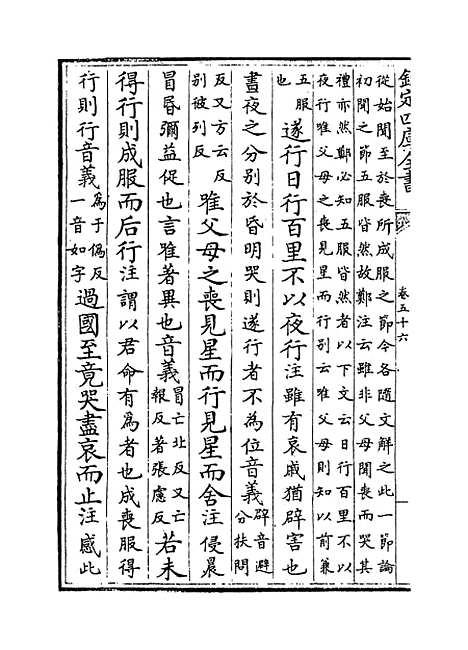 欽定四庫全書
卷五十六
從始聞至於喪所成服之節今各隨文解之此一節論
初聞之節五服皆然故鄭注云雖非父母聞喪而哭其
禮亦然鄭必知五服皆然者以下文云日行百里不以
夜行唯父母之喪見星而行别云唯父母則知以前兼
五服也遂行日行百里不以夜行注雖有哀戚猶辟害也
晝夜之分别於昏明哭則遂行者不為位音義辟音避分扶問
反又方云反别彼列反唯父母之喪見星而行見星而舍注侵晨
冒昏彌益促也言唯著異也音義冒亡北反又亡報反著張慮反若未
得行則成服而后行注謂以君命有為者也成喪服得
行則行音義為于偽反一音如字過國至竟哭盡哀而止注感此